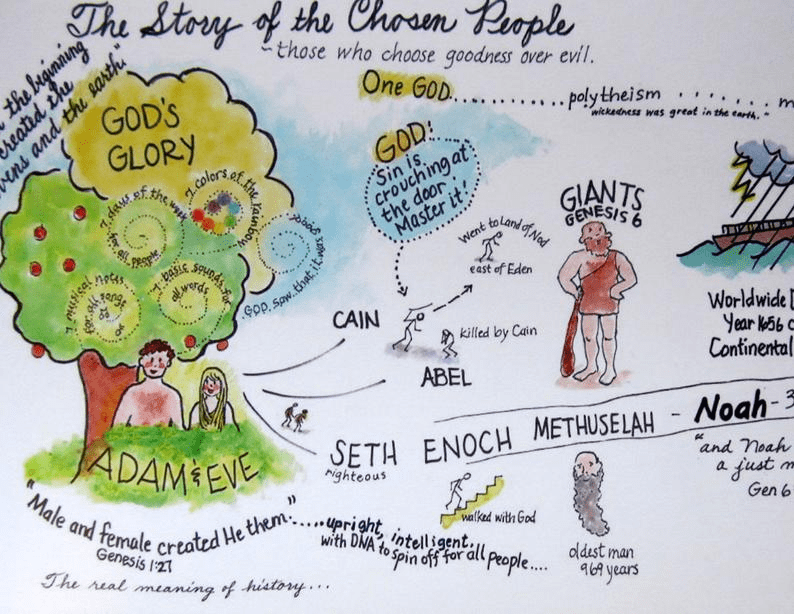 The Story of the Chosen People
~those who choose goodness over evil.
the beginning
created the
and the earth."
One GOD............polytheism . . . . . . . m
wickedness was great in the earth."
GOD'S
GLORY
7 days of the week
for all people
7 colors of the rainbow
7 musical notes
for all songs
7 basic sounds for
all words
GOD saw that it was good
GOD:
Sin is
crouching at
the door.
Master it!
Went to Land of Nod
east of Eden
GIANTS
GENESIS 6
CAIN
killed by Cain
ABEL
Worldwide
Year 1656
Continental
ADAM & EVE
SETH ENOCH METHUSELAH - Noah - 3
righteous
"and Noah
a just
Gen 6
walked with God
oldest man
969 years
"Male and female created He them."
Genesis 1:27
.....upright, intelligent,
with DNA to spin off for all people....
The real meaning of history...